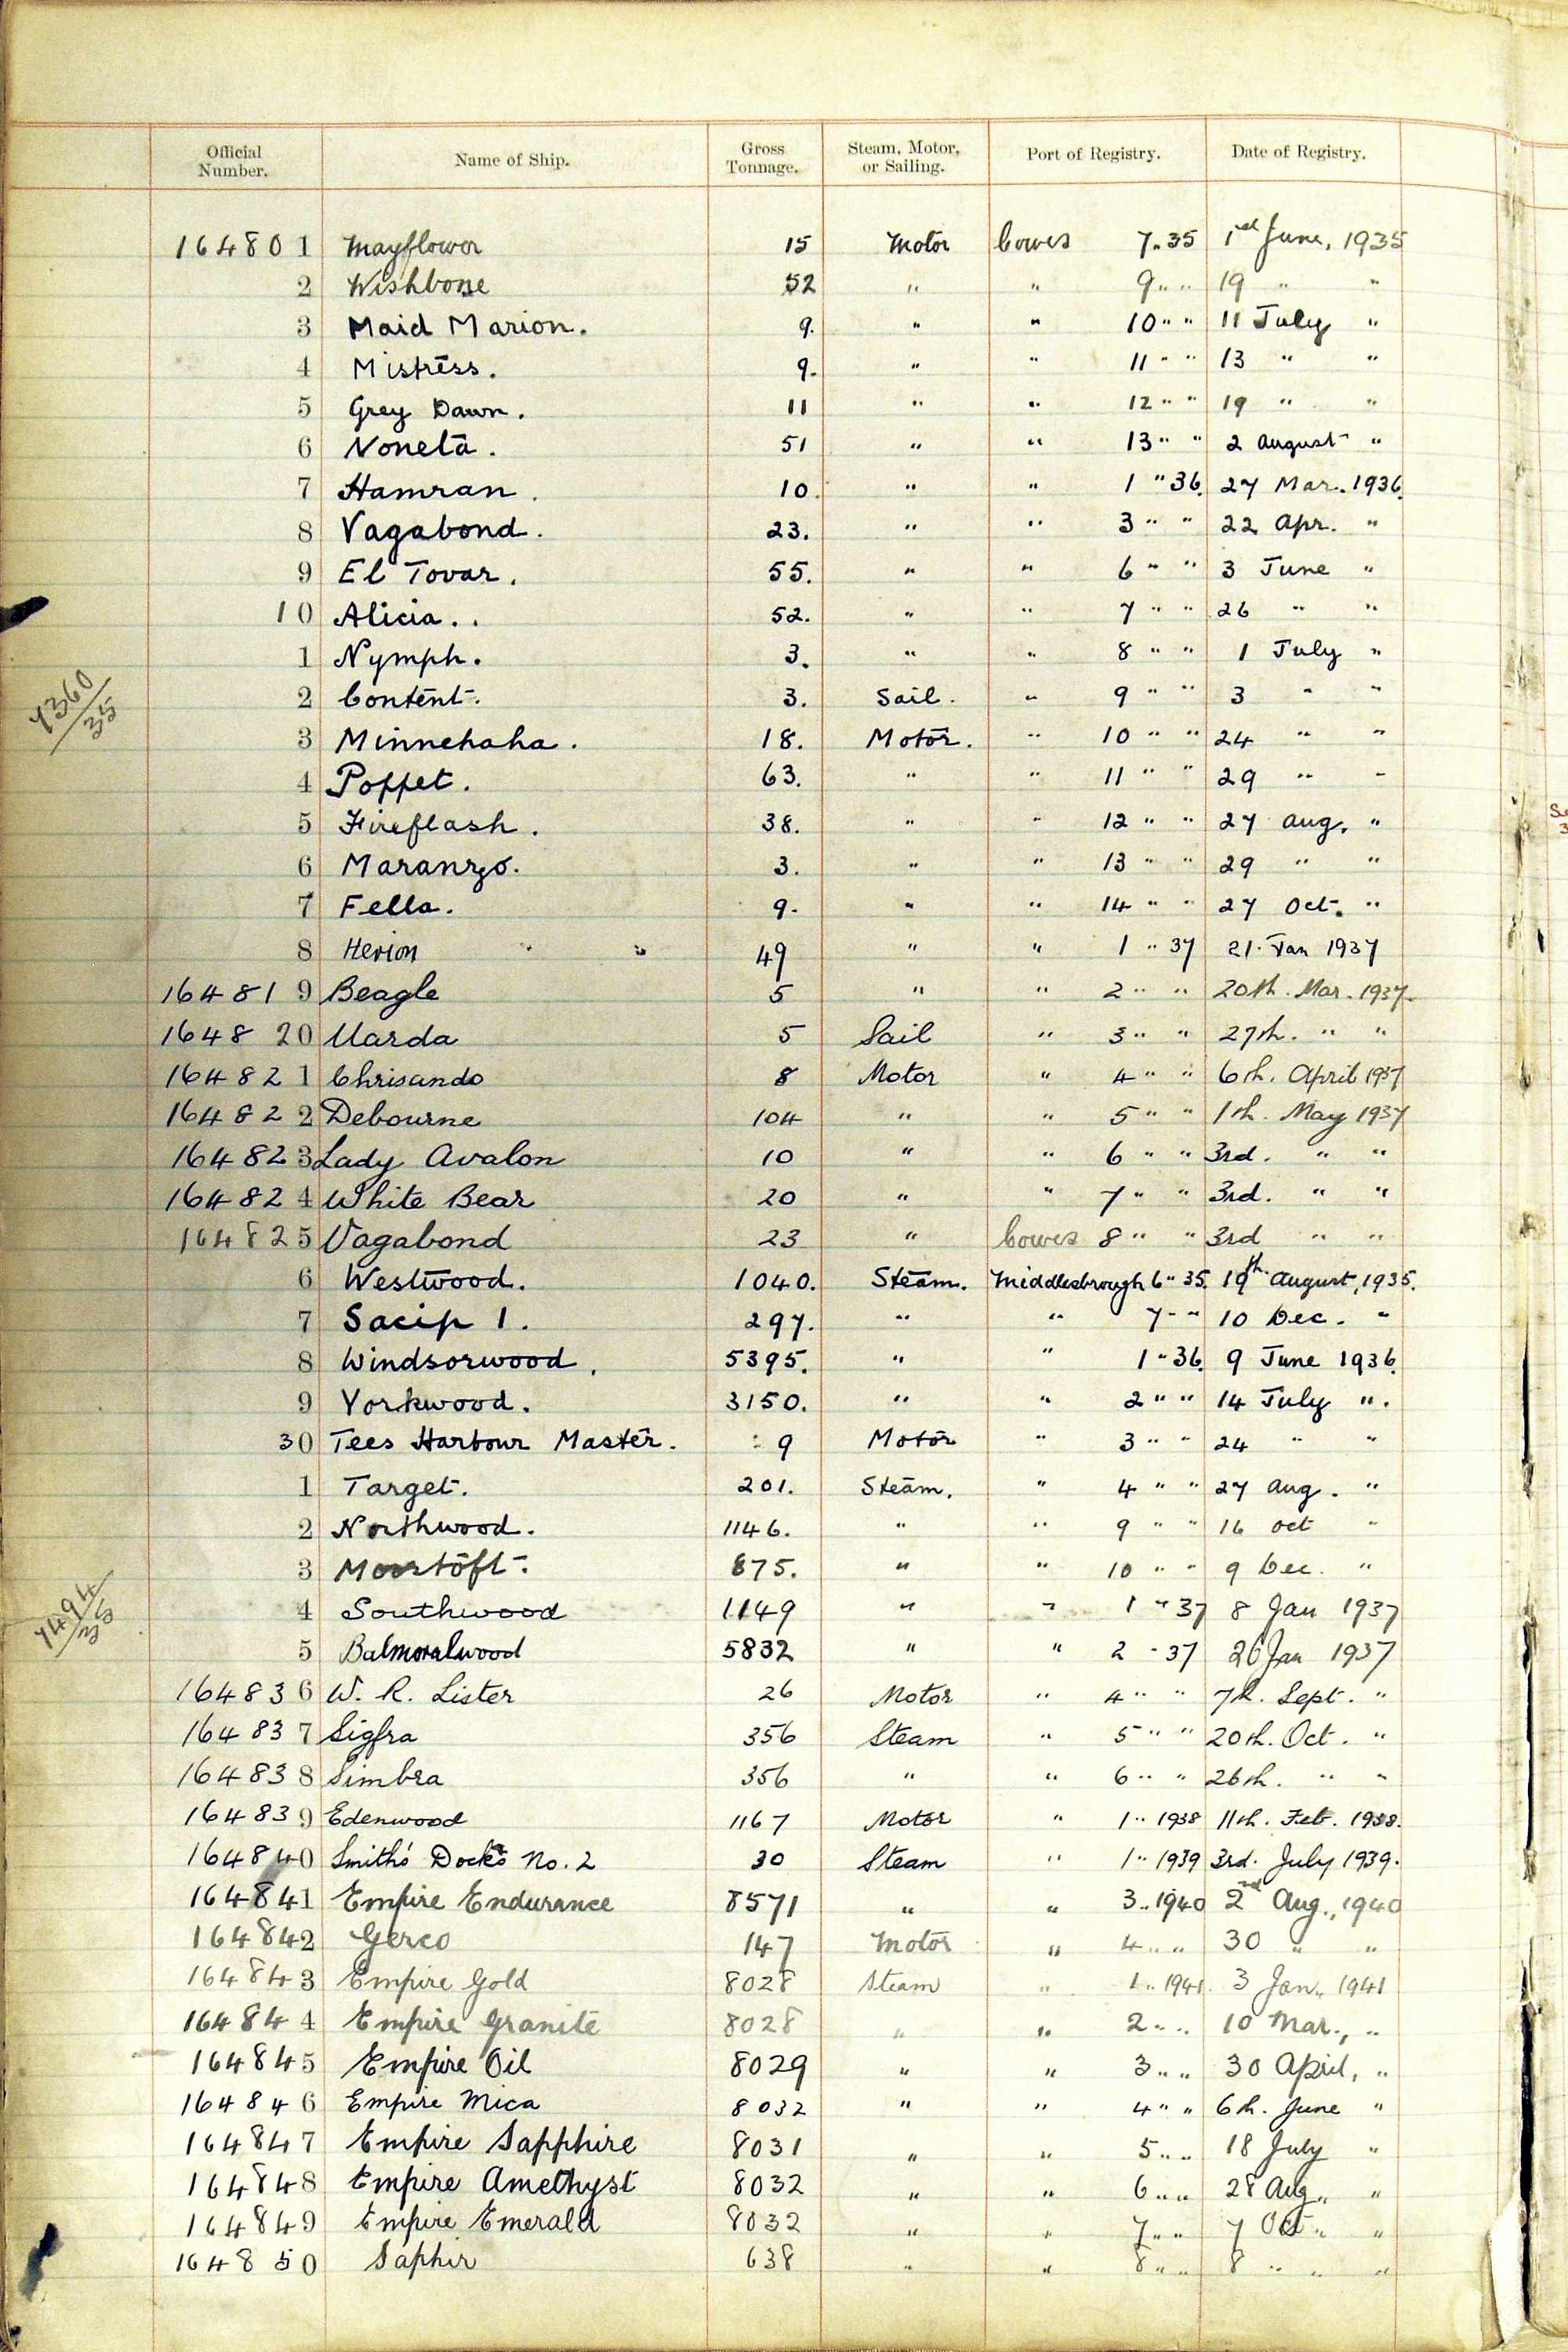 Official Number. Name of Ship. Gross Tonnage. Steam, Motor, or Sailing. Port of Registry. Date of Registry.
164801 Mayflower 15 Motor Cowes 7 " 35 1st June, 1935
2 Wishbone 52 " " 9 " " 19 " "
3 Maid Marion. 9. " " 10 " " 11 July "
4 Mistress. 9. " " 11 " " 13 " "
5 Grey Dawn. 11 " " 12 " " 19 " "
6 Noneta. 51 " " 13 " " 2 August "
7 Hamran. 10. " " 1 " 36. 27 Mar. 1936.
8 Vagabond. 23. " " 3 " " 22 Apr. "
9 El Tovar. 55. " " 6 " " 3 June "
10 Alicia.. 52. " " 7 " " 26 " "
1 Nymph. 3. " " 8 " " 1 July "
7360/35
2 Content. 3. Sail. " 9 " " 3 " "
3 Minnehaha. 18. Motor. " 10 " " 24 " "
4 Poppet. 63. " " 11 " " 29 " "
5 Fireflash. 38. " " 12 " " 27 Aug. "
6 Maranzo. 3. " " 13 " " 29 " "
7 Fella. 9. " " 14 " " 27 Oct. "
8 Herion 49 " " 1 " 37 21. Jan 1937
164819 Beagle 5 " " 2 " " 20th. Mar. 1937.
164820 Uarda 5 Sail " 3 " " 27th. " "
164821 Chrisando 8 Motor " 4 " " 6th. April 1937
164822 Debourne 104 " " 5 " " 1th. May 1937
164823 Lady Avalon 10 " " 6 " " 3rd. " "
164824 White Bear 20 " " 7 " " 3rd. " "
164825 Vagabond 23 " Cowes 8 " " 3rd " "
6 Westwood. 1040. Steam. Middlesbrough 6 " 35. 19th August, 1935.
7 Sacip 1. 297. " " 7 " " 10 Dec. "
8 Windsorwood. 5395. " " 1 " 36. 9 June 1936.
9 Yorkwood. 3150. " " 2 " " 14 July ".
30 Tees Harbour Master. 9 Motor " 3 " " 24 " "
1 Target. 201. Steam. " 4 " " 27 Aug. "
2 Northwood. 1146. " " 9 " " 16 Oct "
3 Moortoft. 875. " " 10 " " 9 Dec. "
7494/35
4 Southwood 1149 " " 1 " 37 8 Jan 1937
5 Balmoralwood 5832 " " 2 " 37 26 Jan 1937
164836 W. R. Lister 26 Motor " 4 " " 7th. Sept. "
164837 Sigfra 356 Steam " 5 " " 20th. Oct. "
164838 Simbra 356 " " 6 " " 26th. " "
164839 Edenwood 1167 Motor " 1 " 1938 11th. Feb. 1938.
164840 Smith's Docks No. 2 30 Steam " 1 " 1939 3rd. July 1939.
164841 Empire Endurance 8571 " " 3 " 1940 2nd Aug., 1940
164842 Gerco 147 Motor " 4 " " 30 " "
164843 Empire Gold 8028 Steam " 1 " 1941. 3 Jan., 1941
164844 Empire Granite 8028 " " 2 " " 10 Mar., "
164845 Empire Oil 8029 " " 3 " " 30 April, "
164846 Empire Mica 8032 " " 4 " " 6th. June "
164847 Empire Sapphire 8031 " " 5 " " 18 July "
164848 Empire Amethyst 8032 " " 6 " " 28 Aug. "
164849 Empire Emerald 8032 " " 7 " " 7 Oct. "
164850 Saphir 638 " " 8 " " 8 " "